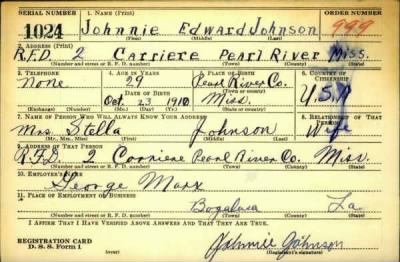 SERIAL NUMBER 1. NAME (Print) ORDER NUMBER
1024 Johnnie Edward Johnson 999
(First) (Middle) (Last)
2. ADDRESS (Print)
R.F.D 2 Carriere Pearl River Miss.
(Number and street or R. F. D. number) (Town) (County) (State)
3. TELEPHONE 4. AGE IN YEARS 5. PLACE OF BIRTH 6. COUNTRY OF CITIZENSHIP
None 29 Pearl River Co.
DATE OF BIRTH (Town or county)
Oct. 23 1910 Miss. U.S.A
(Exchange) (Number) (Mo.) (Day) (Yr.) (State or country)
7. NAME OF PERSON WHO WILL ALWAYS KNOW YOUR ADDRESS 8. RELATIONSHIP OF THAT PERSON
Mrs. Stella Johnson Wife
(Mr., Mrs., Miss) (First) (Middle) (Last)
9. ADDRESS OF THAT PERSON
R.F.D. 2 Carriere Pearl River Co. Miss.
(Number and street or R. F. D. number) (Town) (County) (State)
10. EMPLOYER'S NAME
George Marx
11. PLACE OF EMPLOYMENT OR BUSINESS
Bogalusa La
(Number and street or R. F. D. number) (Town) (County) (State)
I AFFIRM THAT I HAVE VERIFIED ABOVE ANSWERS AND THAT THEY ARE TRUE.
REGISTRATION CARD
D. S. S. Form 1 Johnnie Johnson
(Registrant's signature)